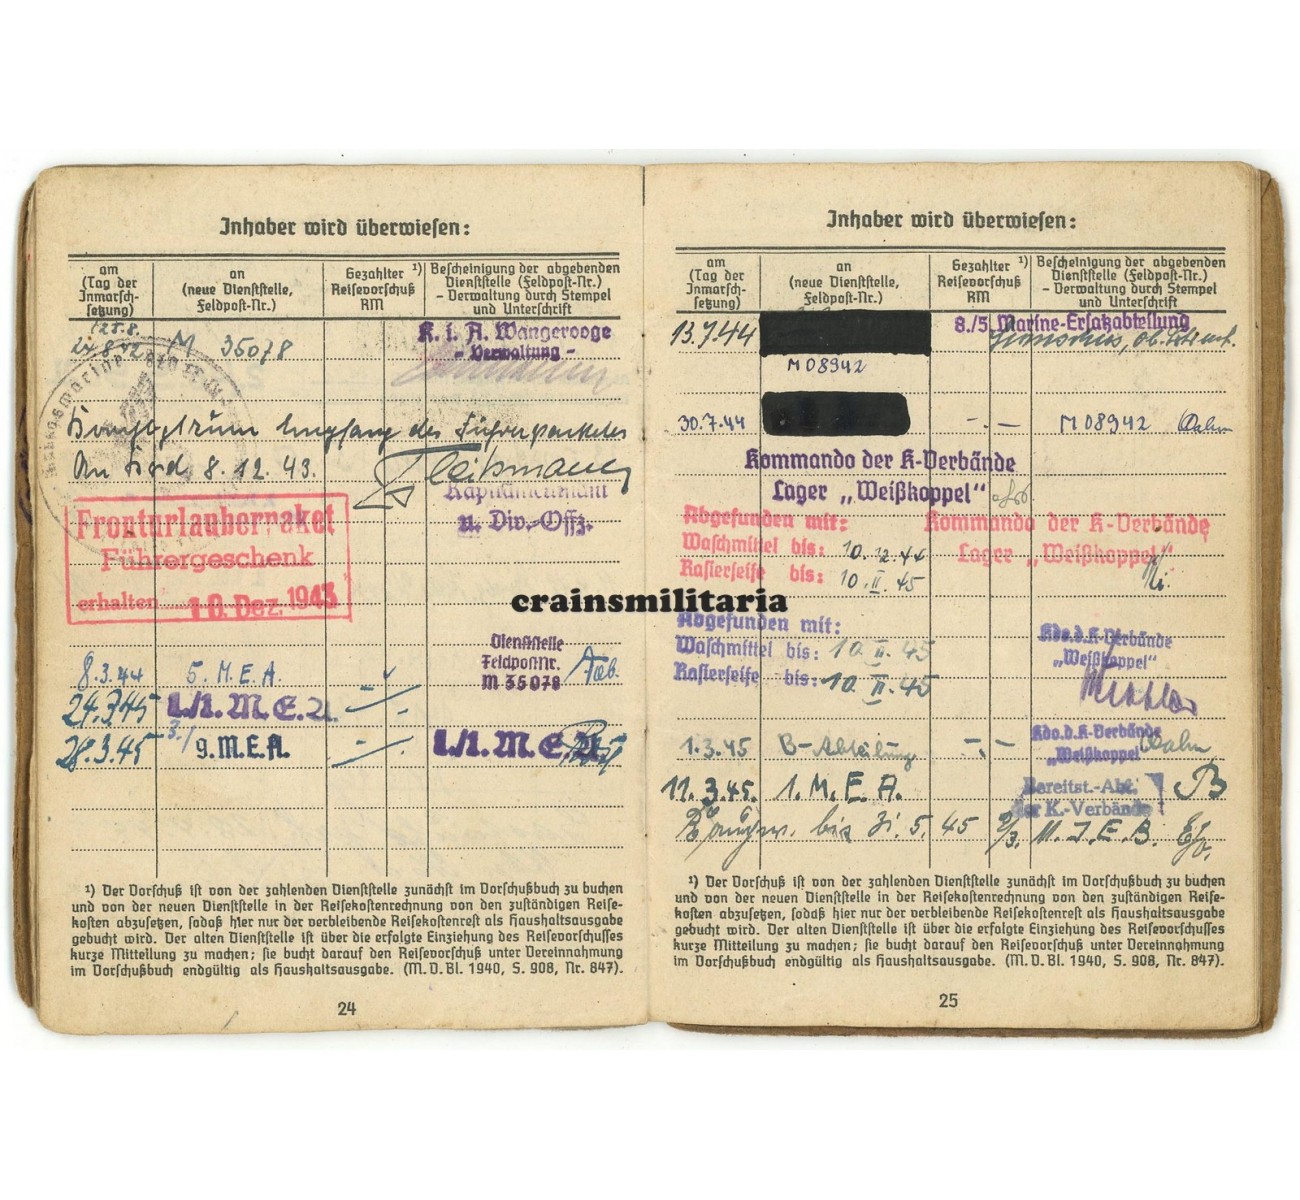 Inhaber wird überwiesen:
am
(Tag der
Inmarsch-
setzung)
an
(neue Dienststelle,
Feldpost-Nr.)
Gezahlter ¹)
Reisevorschuß
RM
Bescheinigung der abgebenden
Dienststelle (Feldpost-Nr.)
- Verwaltung durch Stempel
und Unterschrift
M 35078
K. i. A. Wangerooge
- Verwaltung -
Empfang des Führerpaketes
An Bord 8.12.43.
Kapitänleutnant
u. Div.-Offz.
Fronturlauberpaket
Führergeschenk
erhalten 10. Dez. 1943
Dienststelle
FeldpostNr.
M 35078
8.3.44 5. M.E.A.
24.3.45 1./1. M.E.A.
28.3.45 9. M.E.A. 1./1. M.E.A.
¹) Der Vorschuß ist von der zahlenden Dienststelle zunächst im Vorschußbuch zu buchen
und von der neuen Dienststelle in der Reisekostenrechnung von den zuständigen Reise-
kosten abzusetzen, sodaß hier nur der verbleibende Reisekostenrest als Haushaltsausgabe
gebucht wird. Der alten Dienststelle ist über die erfolgte Einziehung des Reisevorschusses
kurze Mitteilung zu machen; sie bucht darauf den Reisevorschuß unter Vereinnahmung
im Vorschußbuch endgültig als Haushaltsausgabe. (M. D. Bl. 1940, S. 908, Nr. 847).
24
crainsmilitaria
Inhaber wird überwiesen:
am
(Tag der
Inmarsch-
setzung)
an
(neue Dienststelle,
Feldpost-Nr.)
Gezahlter ¹)
Reisevorschuß
RM
Bescheinigung der abgebenden
Dienststelle (Feldpost-Nr.)
- Verwaltung durch Stempel
und Unterschrift
13.7.44 8./5. Marine-Ersatzabteilung
M 08942
30.7.44 -.- M 08942 Dahm
Kommando der K-Verbände
Lager „Weißkoppel“
Abgefunden mit: Kommando der K-Verbände
Waschmittel bis: 10.12.44 Lager „Weißkoppel“
Rasierseife bis: 10.II.45
Abgefunden mit:
Waschmittel bis: 10.II.45
Rasierseife bis: 10.II.45
Kdo.d.K-Verbände
„Weißkoppel“
1.3.45 B-Abteilung -.- Kdo.d.K-Verbände
„Weißkoppel“ Dahm
11.3.45. 1. M.E.A. Bereitst.-Abt.
der K.-Verbände
bis 31.5.45
¹) Der Vorschuß ist von der zahlenden Dienststelle zunächst im Vorschußbuch zu buchen
und von der neuen Dienststelle in der Reisekostenrechnung von den zuständigen Reise-
kosten abzusetzen, sodaß hier nur der verbleibende Reisekostenrest als Haushaltsausgabe
gebucht wird. Der alten Dienststelle ist über die erfolgte Einziehung des Reisevorschusses
kurze Mitteilung zu machen; sie bucht darauf den Reisevorschuß unter Vereinnahmung
im Vorschußbuch endgültig als Haushaltsausgabe. (M. D. Bl. 1940, S. 908, Nr. 847).
25